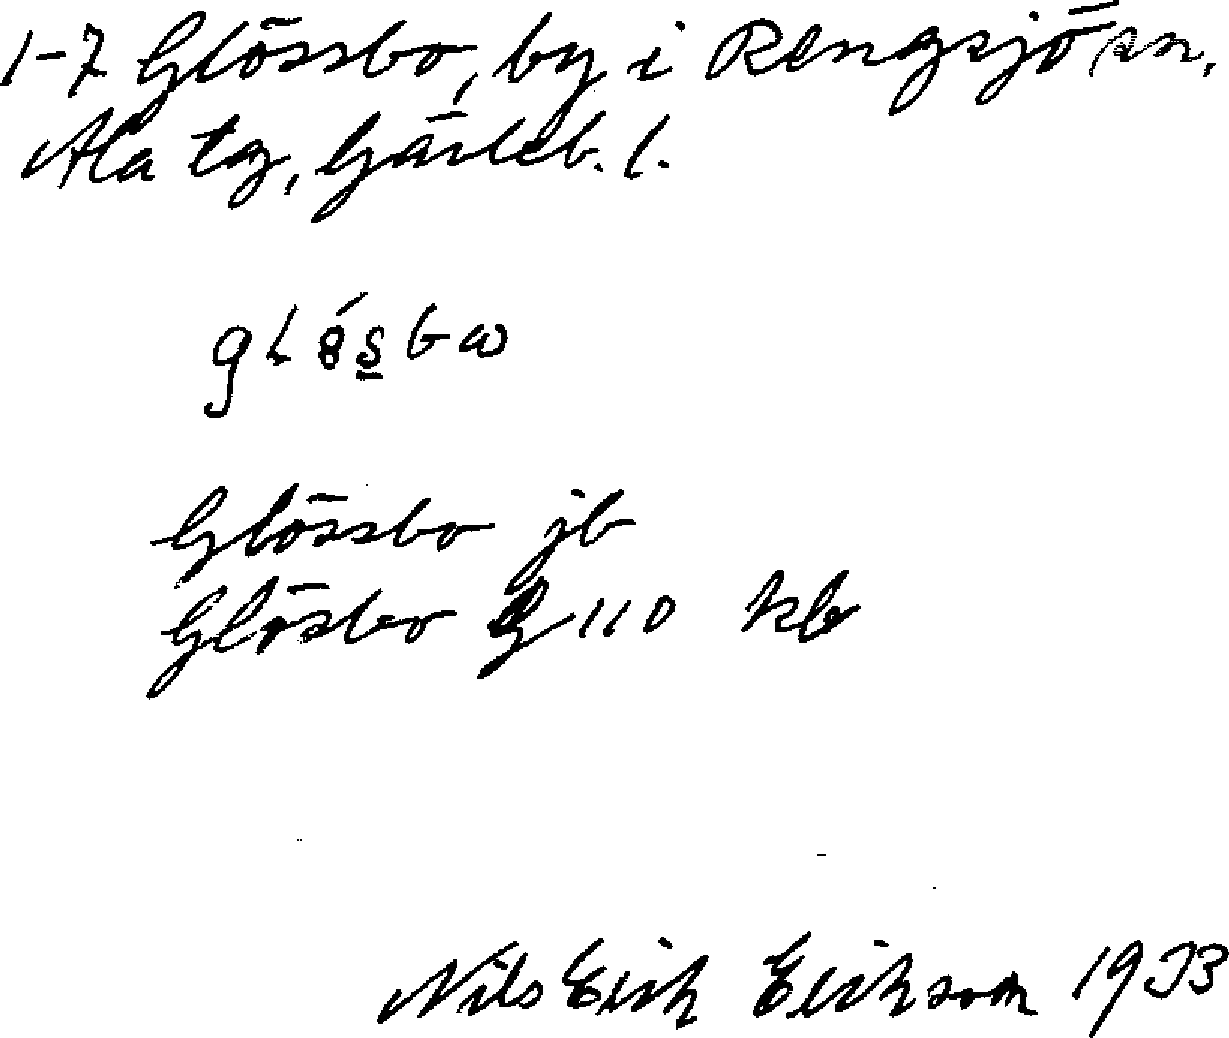 1-7 Glössbo, by i Rengsjö sn,
Ala tg, Gävleb. l.
Glössbo jb
Glösbo G 110 kb
Nils Erik Erikson 1933